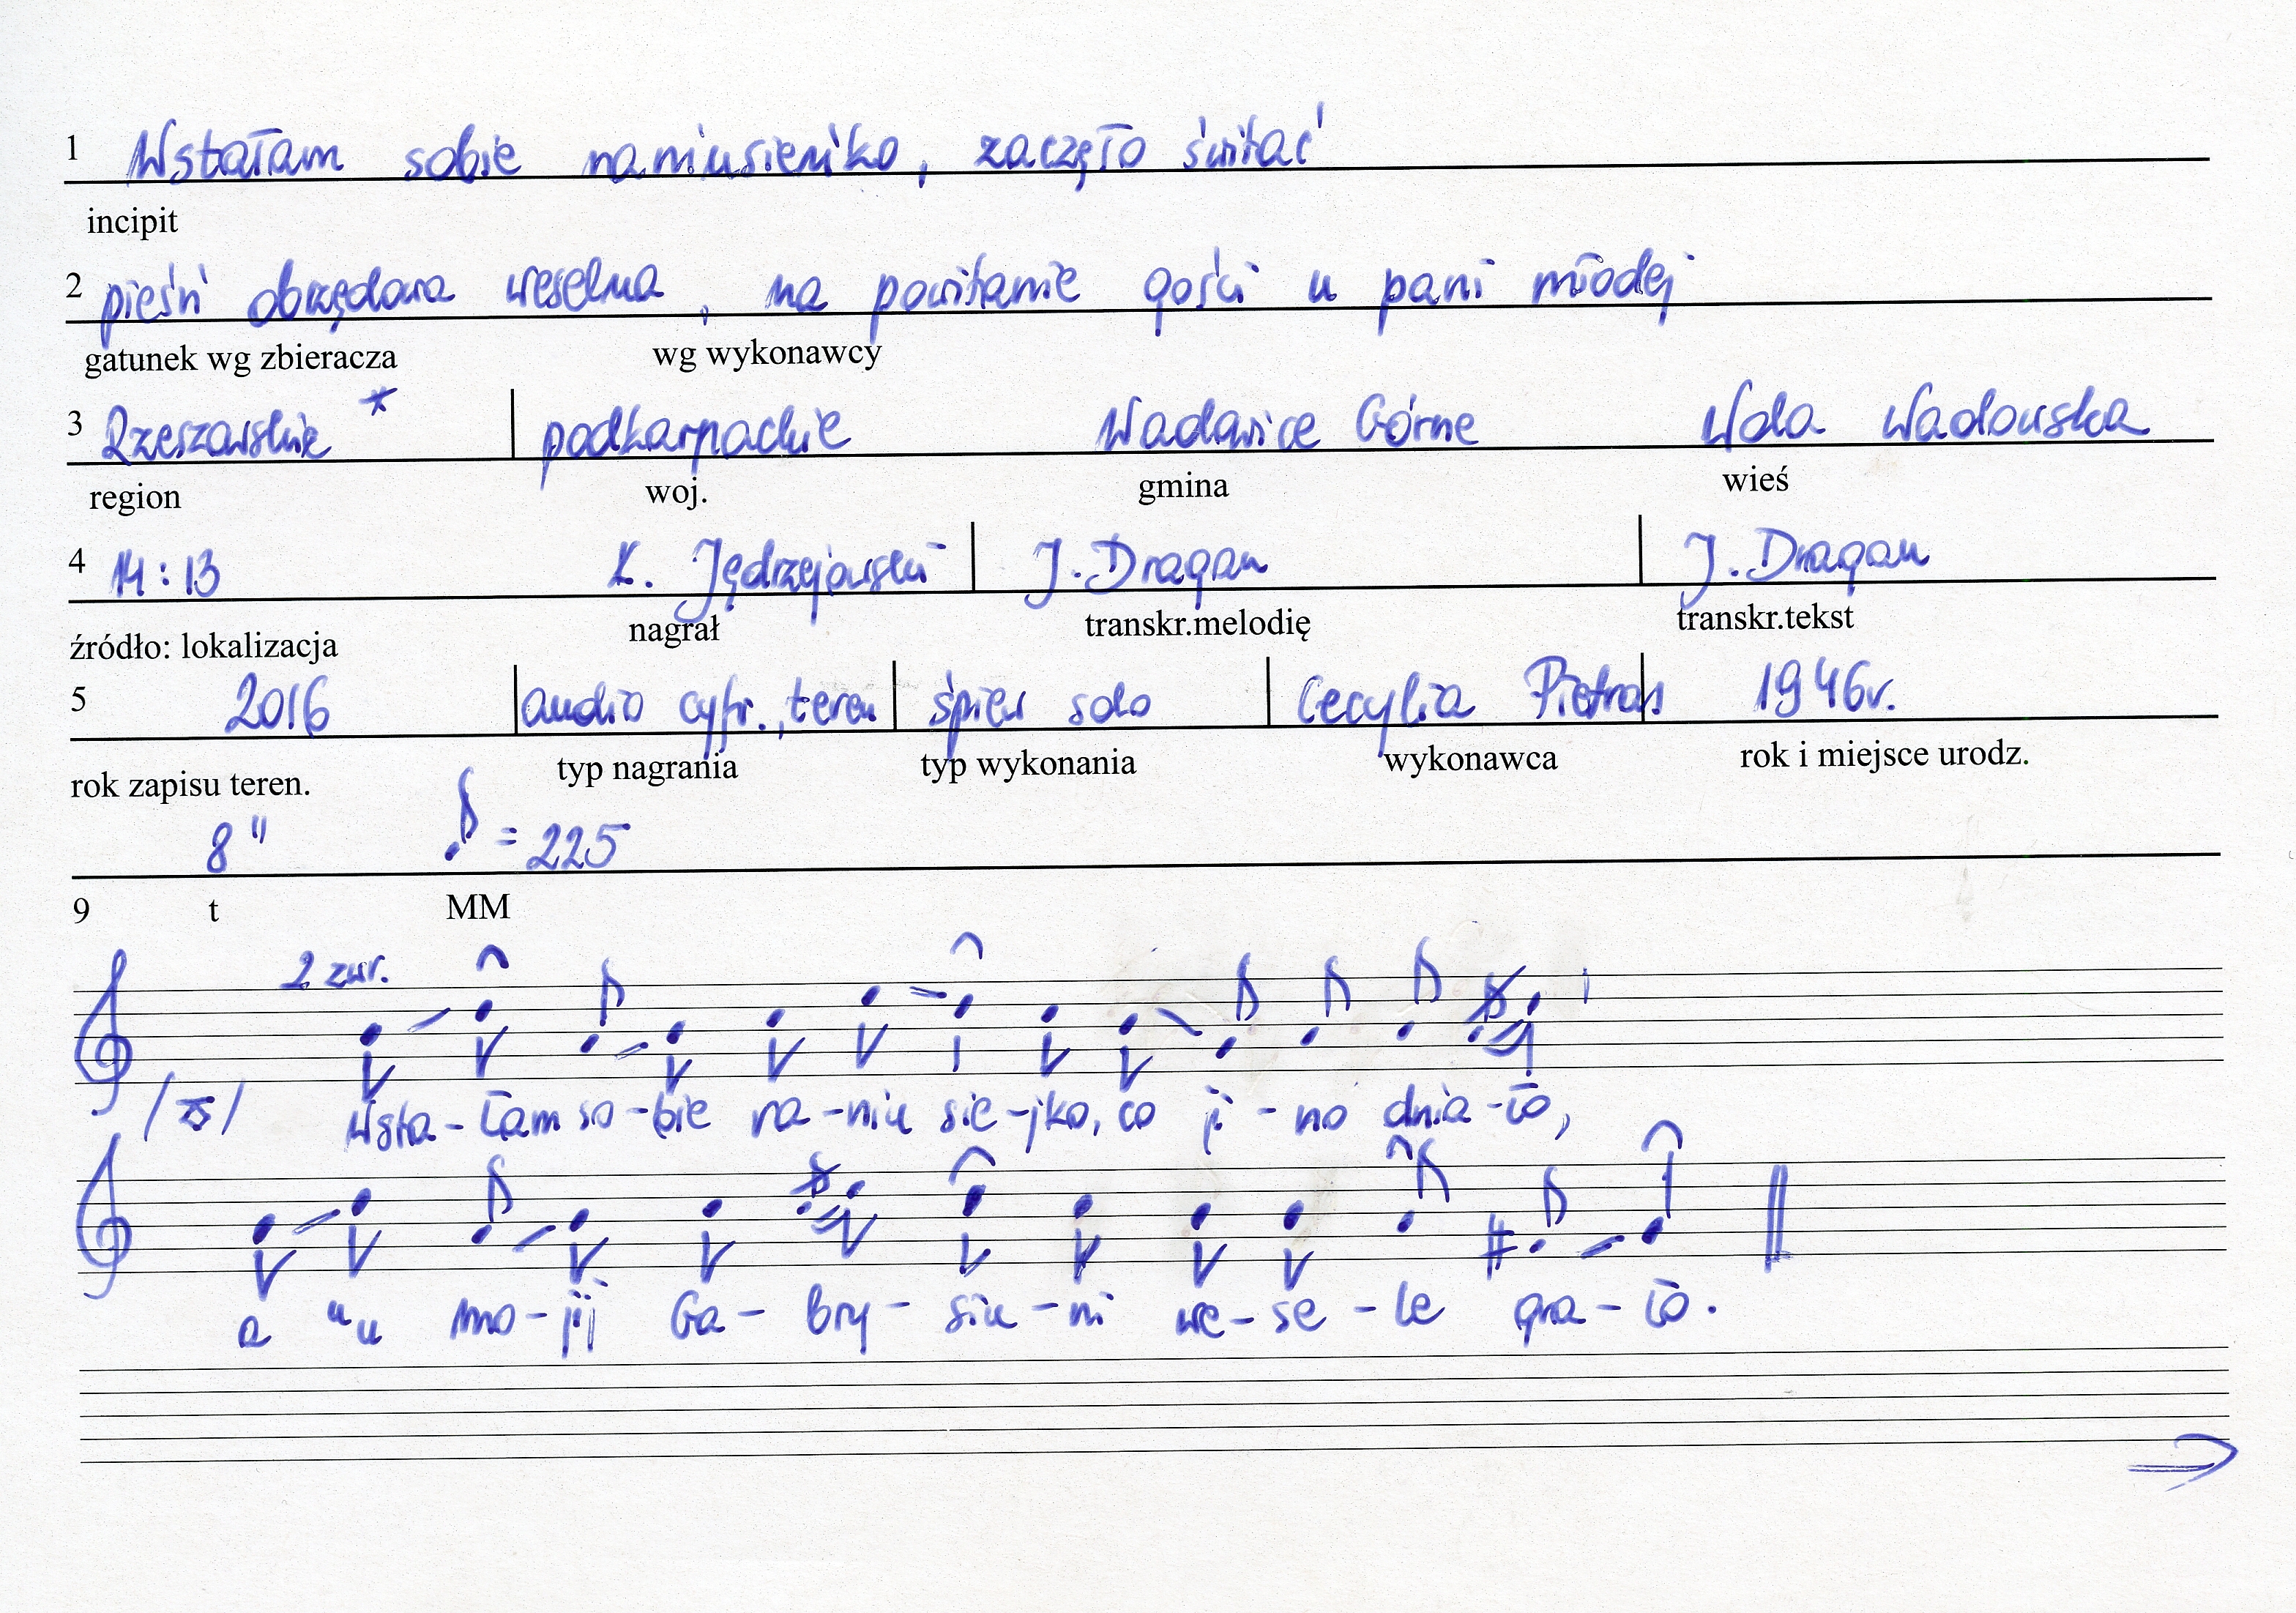 1 Wstałam sobie raniusieńko, zaczęło świtać
incipit
2 pieśń obrzędowa weselna, na powitanie gości u pani młodej
gatunek wg zbieracza wg wykonawcy
3 Rzeszowskie * podkarpackie Wadowice Górne Wola Wadowska
region woj. gmina wieś
4 14:13 K. Jędrzejowski J. Dragan J. Dragan
źródło: lokalizacja nagrał transkr.melodię transkr.tekst
5 2016 audio cyfr., teren śpiew solo Cecylia Pietras 1946r.
rok zapisu teren. typ nagrania typ wykonania wykonawca rok i miejsce urodz.
8" ♪ = 225
9 t MM
2 zwr.
Wsta-łam so-bie ra-niu sie-jko, co ji-no dnia-ło,
a "u mo-jij Ga-bry-siu-ni we-se-le gra-ło.